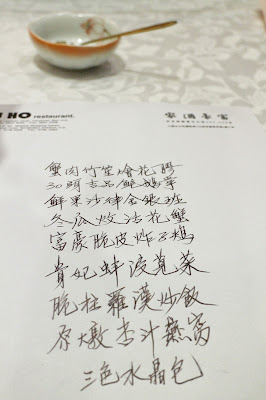 HO restaurant.
蟹肉竹笙燴花膠
30頭吉品鮑
鮮果沙律金銀班
冬瓜炆活花蟹
富豪脆皮炸子鷄
貴妃蚌浸莧菜
脆柱羅漢炒飯
原燉杏汁燕窩
三色水晶包